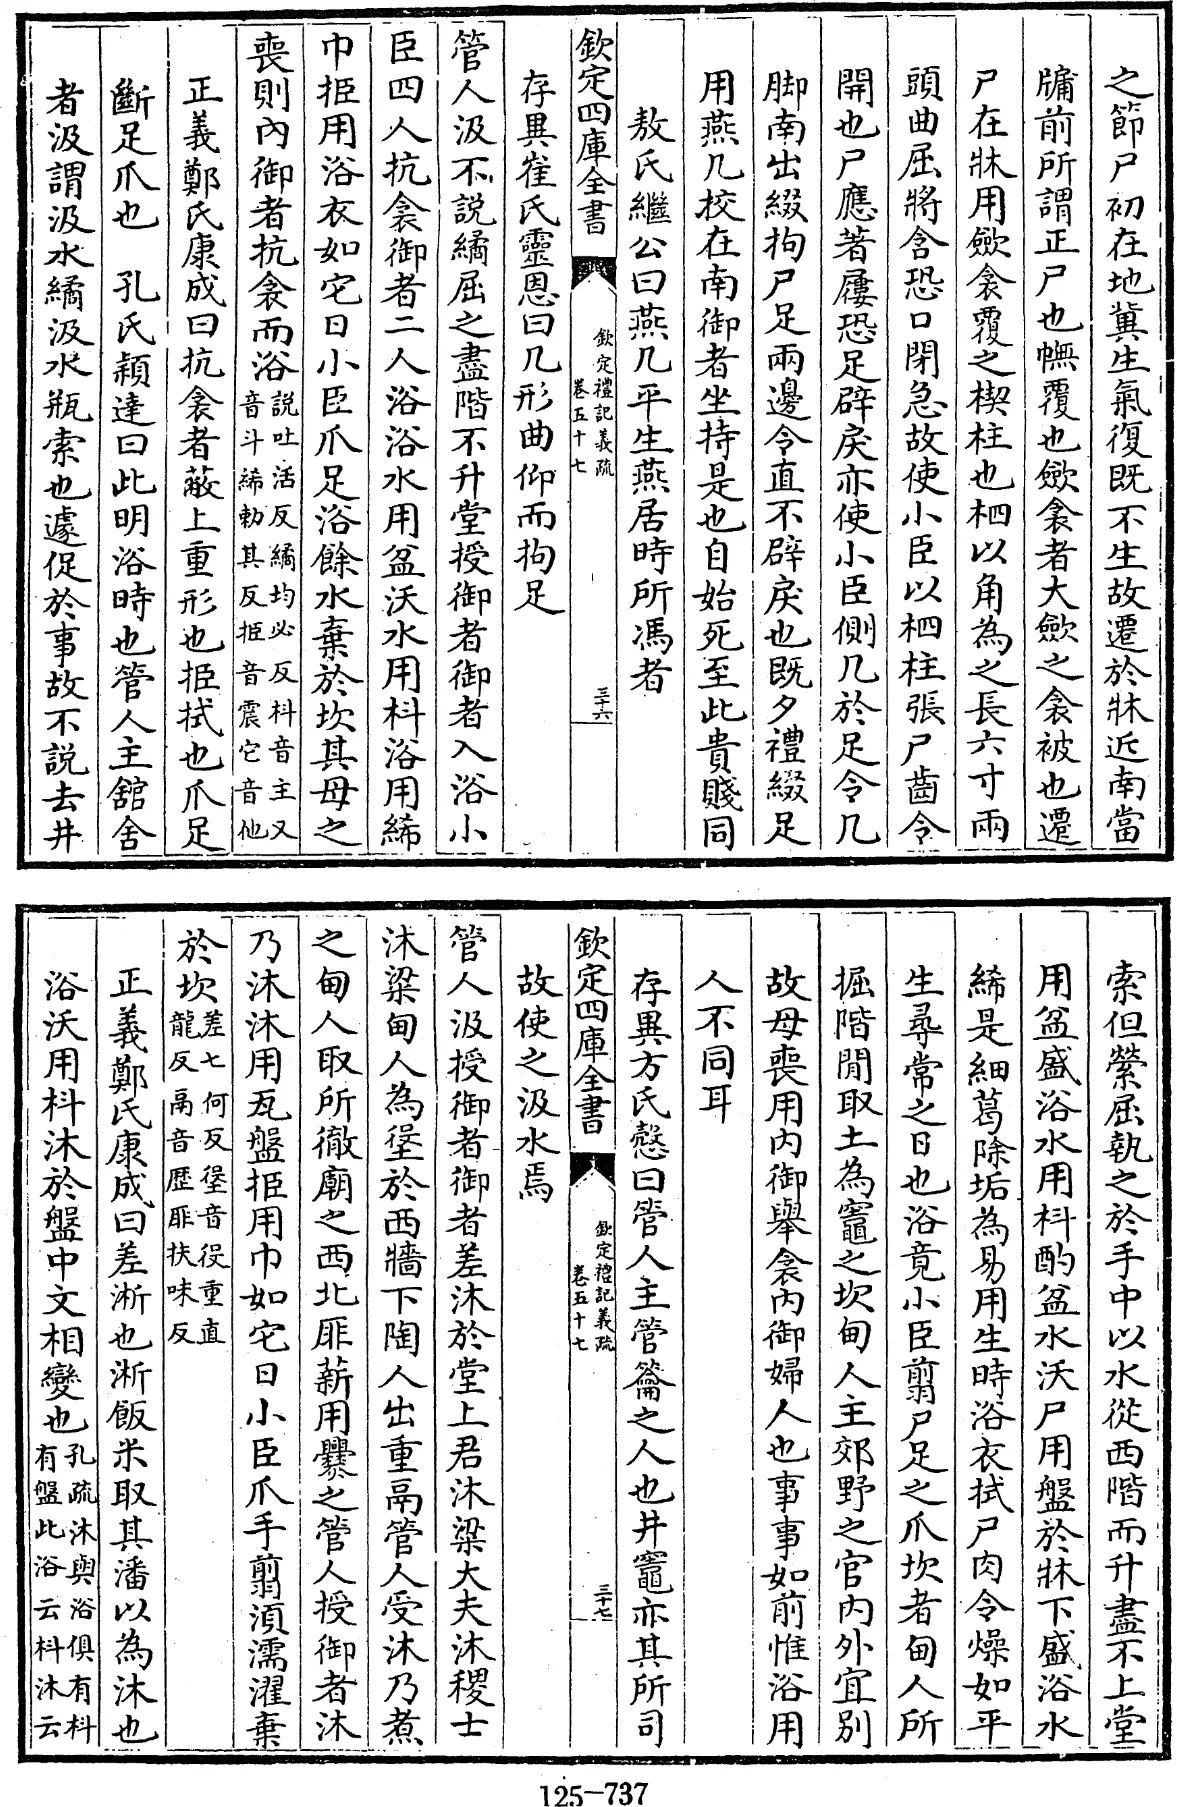 之節尸初在地冀生氣復既不生故遷於牀近南當
牗前所謂正尸也幠覆也斂衾者大斂之衾被也遷
尸在牀用斂衾覆之楔柱也柶以角為之長六寸兩
頭曲屈將含恐口閉急故使小臣以柶柱張尸齒令
開也尸應著屨恐足辟戾亦使小臣側几於足令几
脚南出綴拘尸足兩邊令直不辟戾也既夕禮綴足
用燕几校在南御者坐持是也自始死至此貴賤同
敖氏繼公曰燕几平生燕居時所馮者
欽定四庫全書
欽定禮記義疏
卷五十七
三十六
存異崔氏靈恩曰几形曲仰而拘足
管人汲不説繘屈之盡階不升堂授御者御者入浴小
臣四人抗衾御者二人浴浴水用盆沃水用枓浴用絺
巾挋用浴衣如它日小臣爪足浴餘水棄於坎其母之
喪則內御者抗衾而浴説吐活反繘均必反枓音主又
音斗絺勅其反挋音震它音他
正義鄭氏康成曰抗衾者蔽上重形也挋拭也爪足
斷足爪也　孔氏穎達曰此明浴時也管人主舘舍
者汲謂汲水繘汲水瓶索也遽促於事故不説去井
索但縈屈執之於手中以水從西階而升盡不上堂
用盆盛浴水用枓酌盆水沃尸用盤於牀下盛浴水
絺是細葛除垢為易用生時浴衣拭尸肉令燥如平
生尋常之日也浴竟小臣翦尸足之爪坎者甸人所
掘階閒取土為竈之坎甸人主郊野之官內外宜別
故母喪用內御舉衾內御婦人也事事如前惟浴用
人不同耳
存異方氏慤曰管人主管籥之人也井竈亦其所司
欽定四庫全書
欽定禮記義疏
卷五十七
三十七
故使之汲水焉
管人汲授御者御者差沐於堂上君沐梁大夫沐稷士
沐梁甸人為垼於西牆下陶人出重鬲管人受沐乃煮
之甸人取所徹廟之西北厞薪用爨之管人授御者沐
乃沐沐用瓦盤挋用巾如它日小臣爪手翦須濡濯棄
於坎差七何反垼音役重直
龍反鬲音歷厞扶味反
正義鄭氏康成曰差淅也淅飯米取其潘以為沐也
浴沃用枓沐於盤中文相變也孔疏沐與浴俱有枓
有盤此浴云枓沐云
125-737